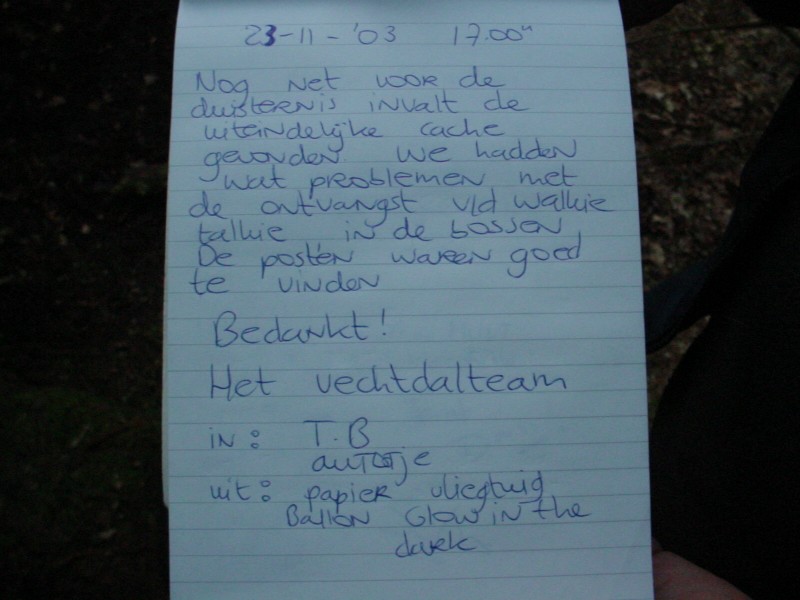 23-11-'03 17.00u
Nog net voor de
duisternis invalt de
uiteindelijke cache
gevonden. We hadden
wat problemen met
de ontvangst v/d walkie
talkie in de bossen
De posten waren goed
te vinden
Bedankt!
Het vechtdalteam
in: T.B
autotje
uit: papier vliegtuig
Ballon Glow in the
dark